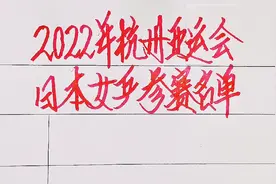 2022年杭州亚运会
日本女乒参赛名单